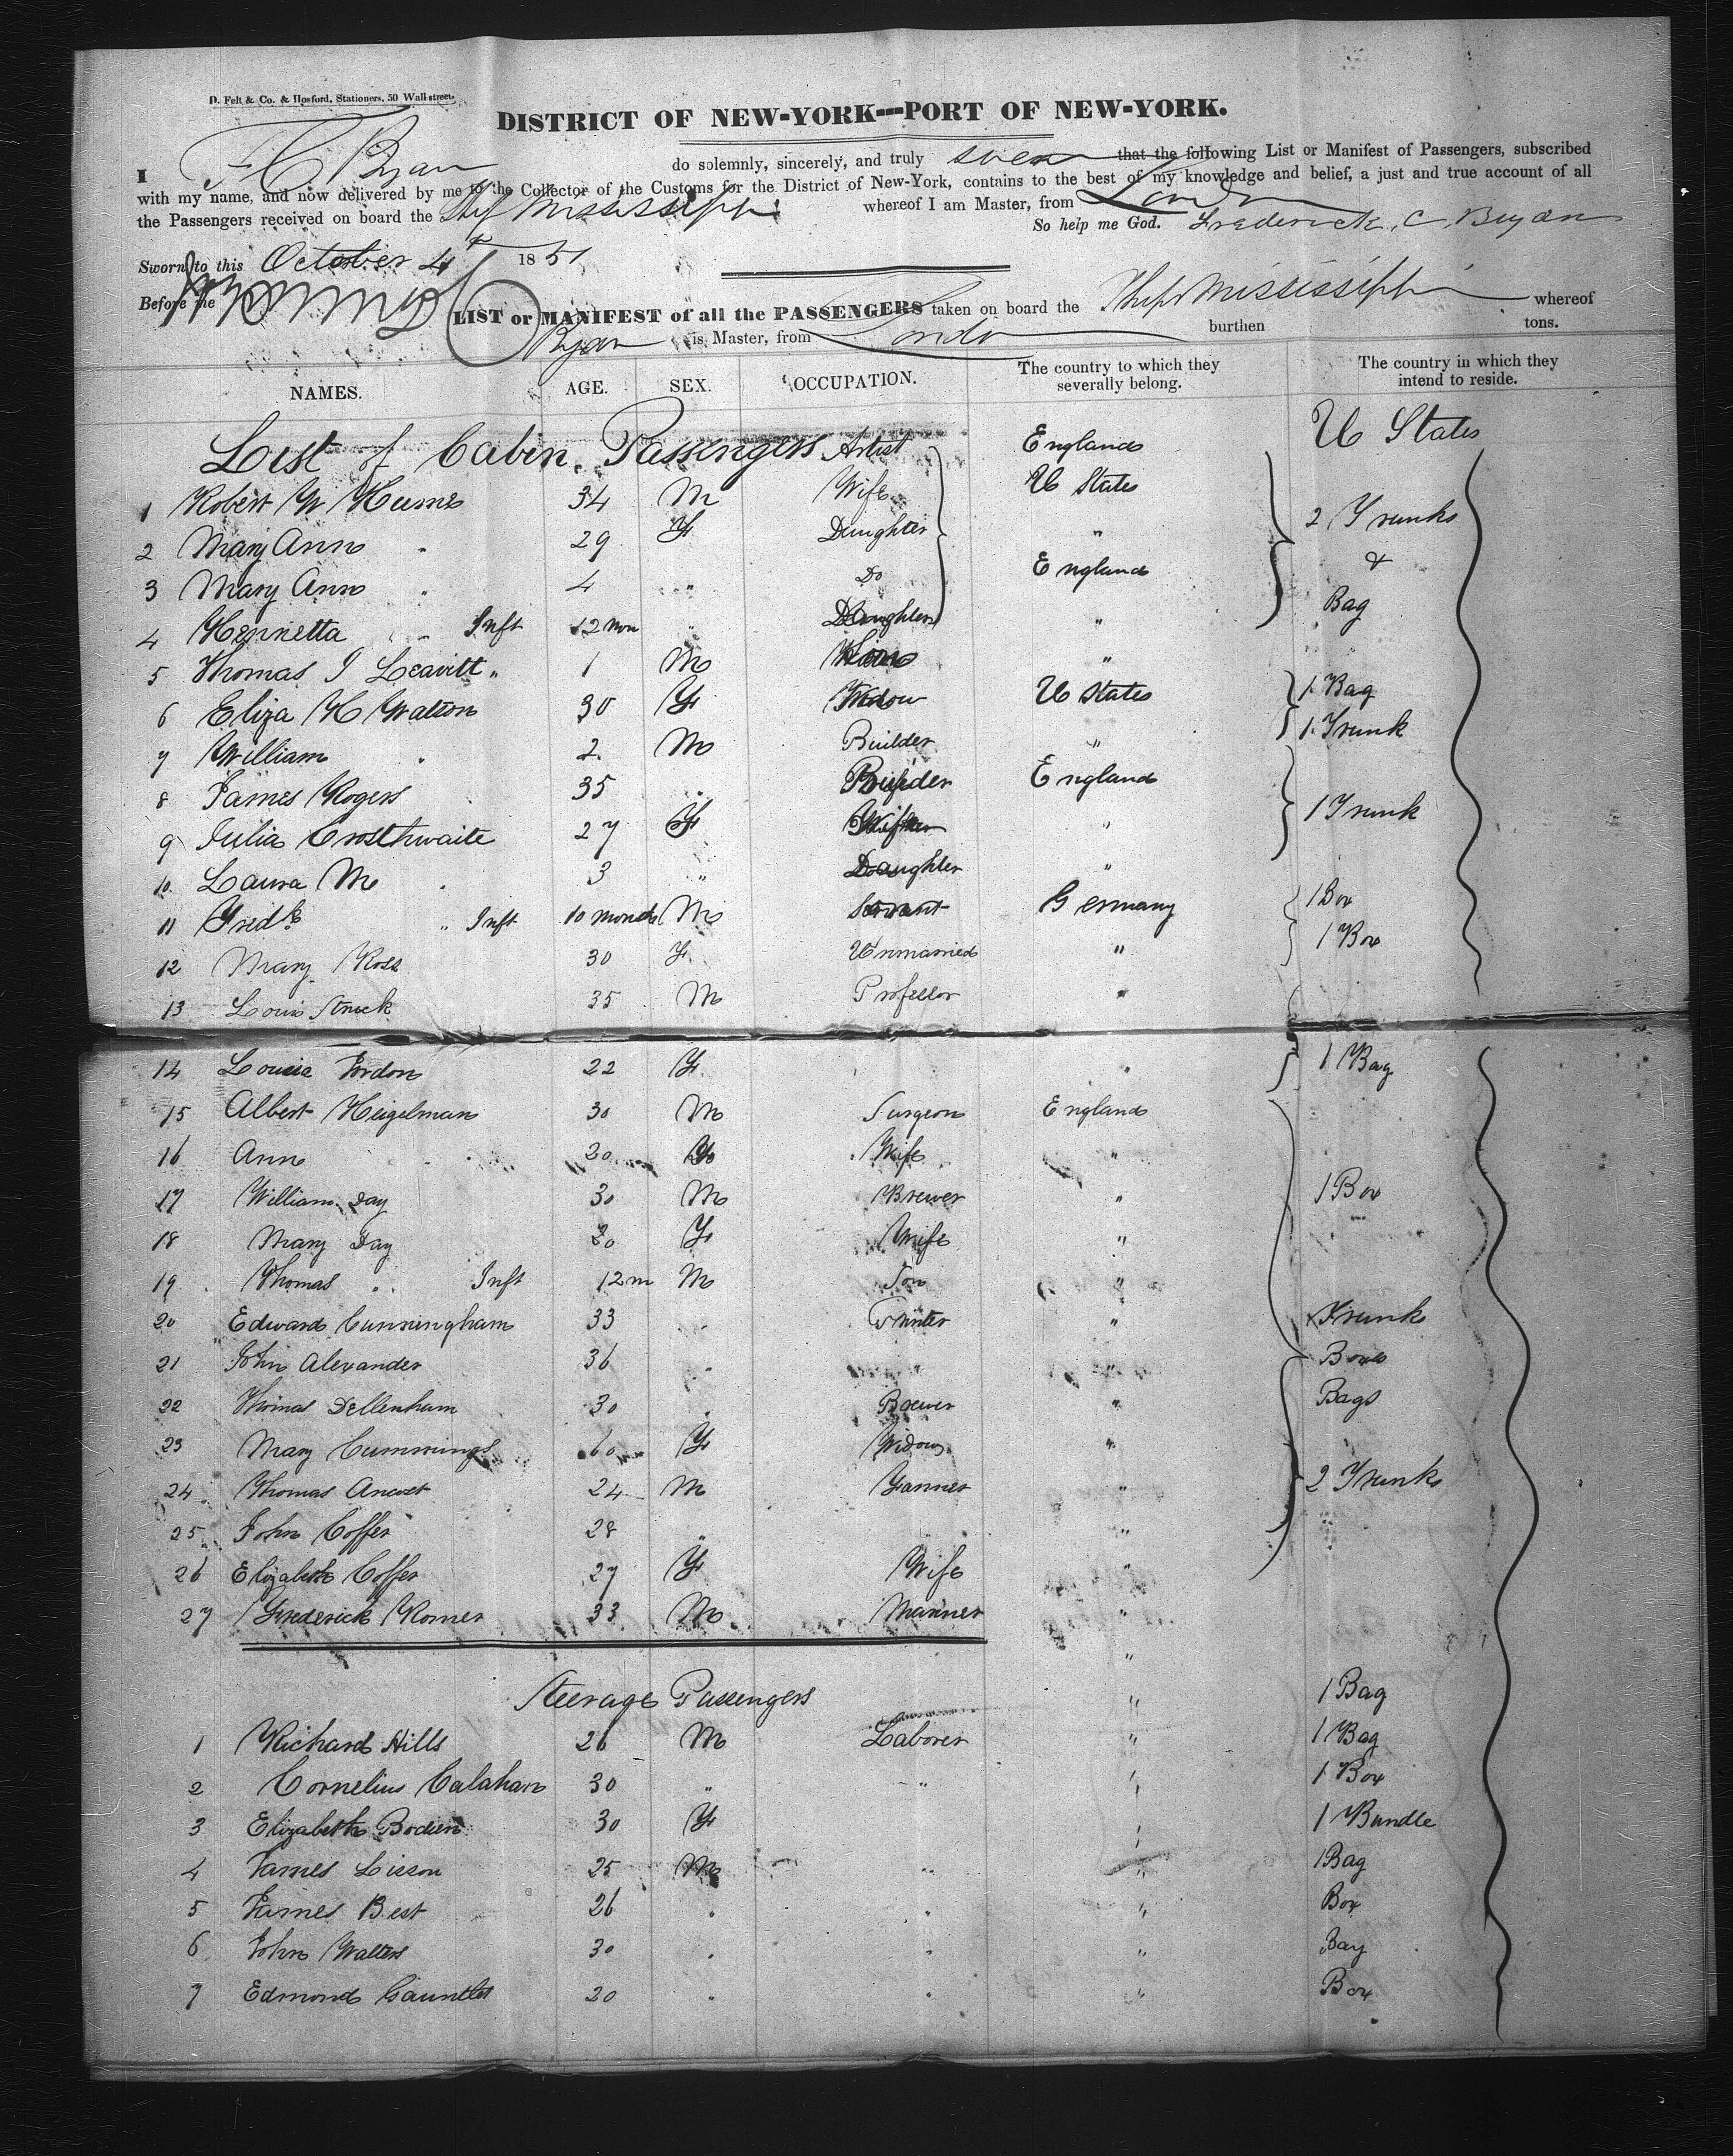 D. Felt & Co. & Hosford, Stationers, 50 Wall street.
DISTRICT OF NEW-YORK---PORT OF NEW-YORK.
I F C Bryan do solemnly, sincerely, and truly swear that the following List or Manifest of Passengers, subscribed
with my name, and now delivered by me to the Collector of the Customs for the District of New-York, contains to the best of my knowledge and belief, a just and true account of all
the Passengers received on board the Ship Mississippi whereof I am Master, from London
So help me God. Frederick, C, Bryan
Sworn to this October 4th 1851
Before me
LIST or MANIFEST of all the PASSENGERS taken on board the Ship Mississippi whereof
Bryan is Master, from London burthen tons.
NAMES. AGE. SEX. OCCUPATION. The country to which they severally belong. The country in which they intend to reside.
List of Cabin Passengers Artist England U States
1 Robert W Hume 34 M Wife U States
2 Mary Ann " 29 F Daughter " 2 Trunks
3 Mary Ann " 4 " Do England &
4 Henrietta " Inft 12 mon " Daughter " Bag
5 Thomas J Leavitt " 1 M "
6 Eliza H Walton 30 F Widow U States 1 Bag
7 William " 2 M Builder " 1 Trunk
8 James Rogers 35 " England
9 Julia Crosthwaite 27 F " 1 Trunk
10. Laura M " 3 " Daughter "
11 Fredk " Inft 10 months M Servant Germany 1 Box
12 Mary Ross 30 F. Unmarried " 1 Box
13 Louis Struck 35 M Professor "
14 Louisa Fordon 22 F " 1 Bag
15 Albert Heigelman 30 M Surgeon England
16 Ann " 20 F Wife "
17 William Day 30 M Brewer " 1 Box
18 Mary Day 30 F Wife "
19 Thomas " Inft 12 m M Son "
20 Edward Cunningham 33 " Printer " Trunk
21 John Alexander 36 " " " Boxes
22 Thomas Dellenham 30 " Brewer " Bags
23 Mary Cummings 60 F Widow "
24 Thomas 24 M Farmer " 2 Trunks
25 John Coffer 28 " "
26 Elizabeth Coffer 27 F Wife "
27 Frederick Romer 33 M Mariner "
"
Steerage Passengers " 1 Bag
1 Richard Hills 26 M Laborer " 1 Bag
2 Cornelius Calahan 30 " " " 1 Box
3 Elizabeth Bodien 30 F " 1 Bundle
4 James Lisson 25 M " " 1 Bag
5 James Best 26 " " " Box
6 John Walters 30 " " " Bag
7 Edmond Gauntlet 20 " " " Box